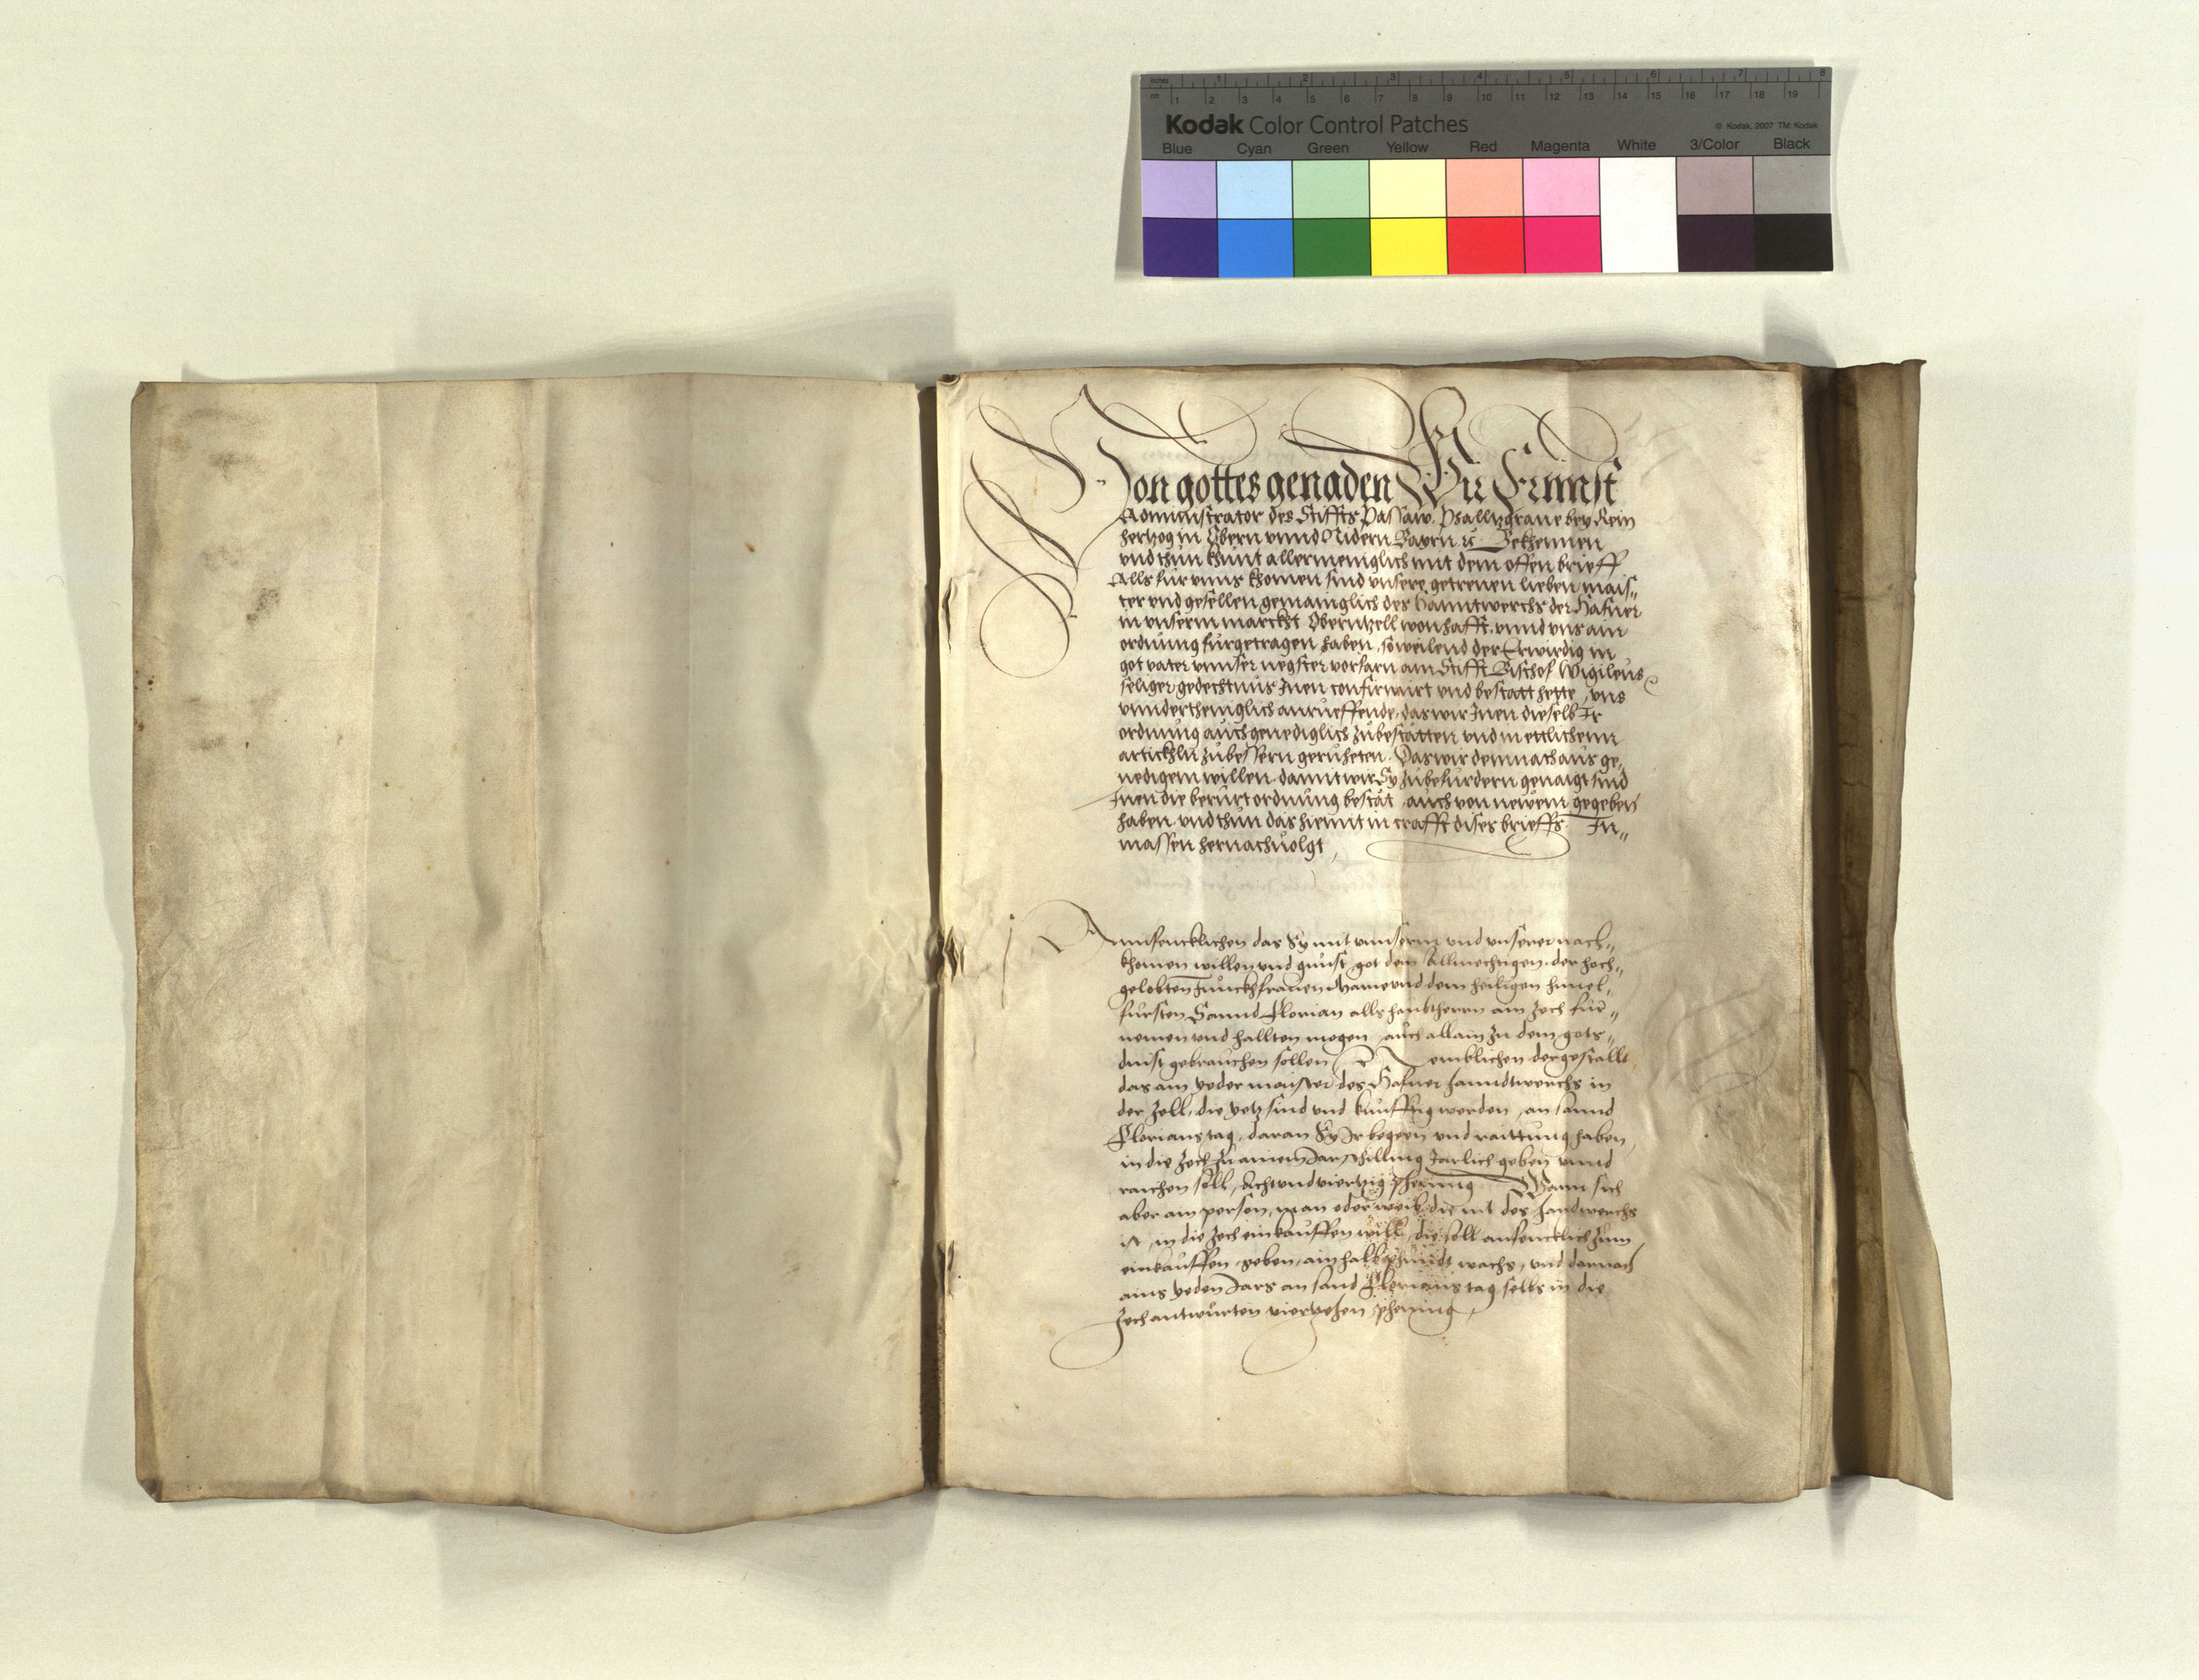 inches 1 2 3 4 5 6 7 8
cm 1 2 3 4 5 6 7 8 9 10 11 12 13 14 15 16 17 18 19
Kodak Color Control Patches © Kodak, 2007 TM: Kodak
Blue Cyan Green Yellow Red Magenta White 3/Color Black
Von gottes genaden Wir Ernnst
Administrator des Stiffts Passaw. Phalltzgraue bey Rein
hertzog in Obern vnnd Nidern Bayrn rc. Bekhennen
vnd thun khunt allermeniglich mit dem offen brieff
Alls für vnns khomen sind vnsere getrewen lieben mais„
ter vnd gesellen gemainiglich des hanntwerchs der Hafner
in vnserm marckht Obernzell wonhafft, vnnd vns ain
ordnung fürgetragen haben, so weilend der Erwirdig in
got vater vnnser negster vorfarn am Stifft Bischof Wigileus
seliger gedechtnus Inen confirmirt vnd bestatt hette, vns
vnndertheniglich anrueffende, das wir Inen dieselb Ir
ordnung auch genediglich zubestatten vnd in ettlichenn
artickhln zubessern geruheten. Das wir demnach aus ge„
nedigem willen damit wir Sy zubefurdern genaigt sind
Inen die berurt ordnung bestät, auch von newem gegeben
haben vnd thun das hiemit in crafft dises brieffs In„
massen hernachuolgt,
Annfencklichen das Sy mit vnnserm vnd vnserer nach„
khomen willen vnd gunst, got dem Allmechtigen, der hoch„
gelobten Junckhfrauen Marie vnd dem heiligen himel„
fursten Sannd Florian alls haubtherrn ain Zech für„
nemen vnd hallten mogen, auch allain zu dem gots„
dinst gebrauchen sollen, Nemblichen dergestallt
das ain yeder maister des Hafner hanndtwerchs in
der Zell, die yetz sind vnd kunfftig werden, an sannd
Florians tag, daran Sy Ir begeen vnd raittung haben,
in die Zech zu ainem Jarschilling Jarlich geben vnnd
raichen soll, Achtundviertzig phening Wann sich
aber ain person, man oder weib, die nit des handwerchs
ist, in die Zech einkauffen will, die soll anfencklich zum
einkauffen geben, ain halb phundt wachs, vnd darnach
ains yeden Jars an sand Florians tag solls in die
Zech antwurten vierzehen phening,